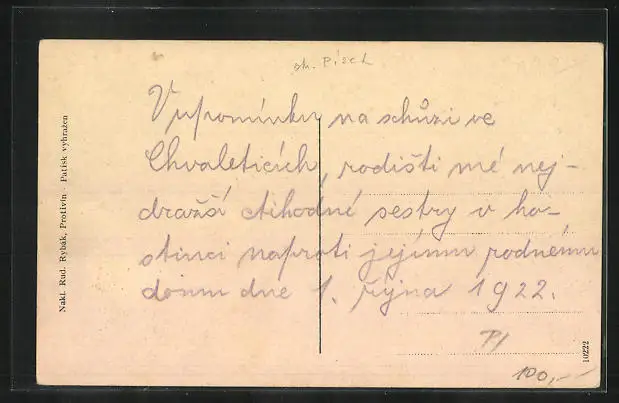 ok. Písek
V upomínku na schůzi ve
Chvaleticích, rodišti mé nej-
dražší ctihodné sestry v ho-
stinci naproti jejímu rodnému
domu dne 1. října 1922.
Nakl. Rud. Rybák, Protivín - Patisk vyhražen
10222
100,-